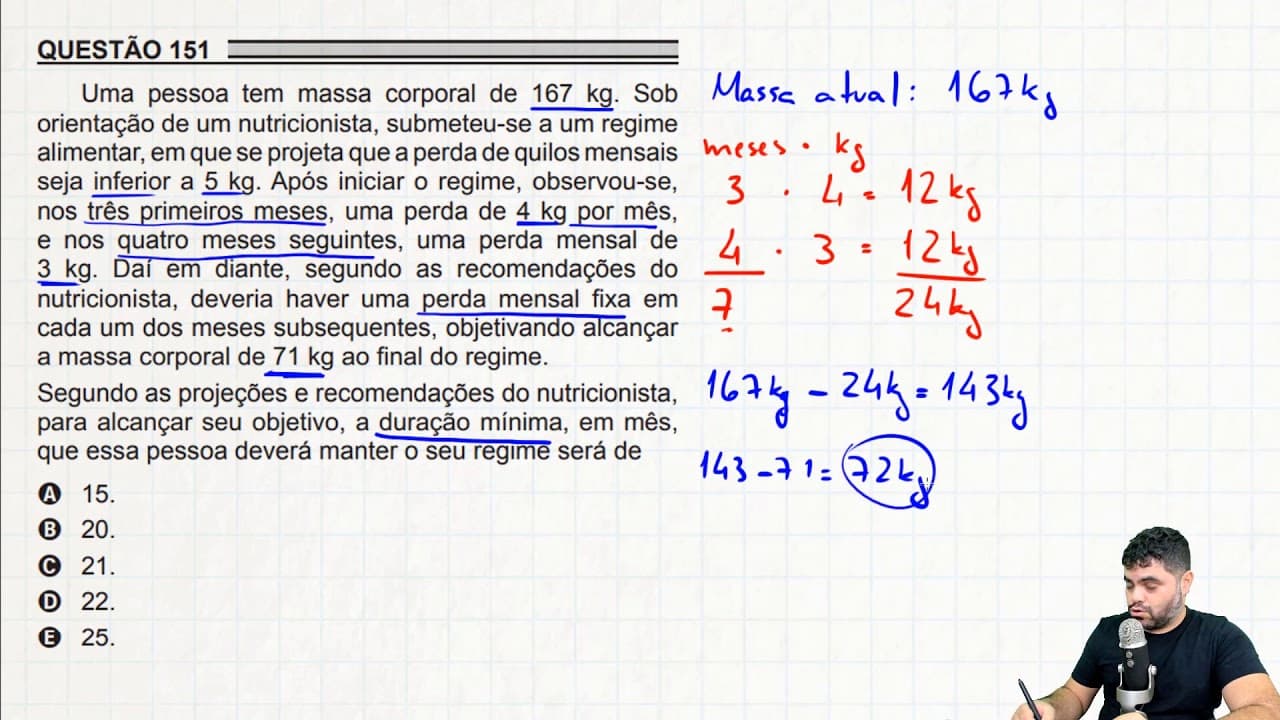 QUESTÃO 151
Uma pessoa tem massa corporal de 167 kg. Sob
orientação de um nutricionista, submeteu-se a um regime
alimentar, em que se projeta que a perda de quilos mensais
seja inferior a 5 kg. Após iniciar o regime, observou-se,
nos três primeiros meses, uma perda de 4 kg por mês,
e nos quatro meses seguintes, uma perda mensal de
3 kg. Daí em diante, segundo as recomendações do
nutricionista, deveria haver uma perda mensal fixa em
cada um dos meses subsequentes, objetivando alcançar
a massa corporal de 71 kg ao final do regime.
Segundo as projeções e recomendações do nutricionista,
para alcançar seu objetivo, a duração mínima, em mês,
que essa pessoa deverá manter o seu regime será de
A 15.
B 20.
C 21.
D 22.
E 25.
Massa atual: 167kg
meses · kg
3 · 4 = 12kg
4 · 3 = 12kg
7 24kg
167kg - 24kg = 143kg
143-71= 72kg